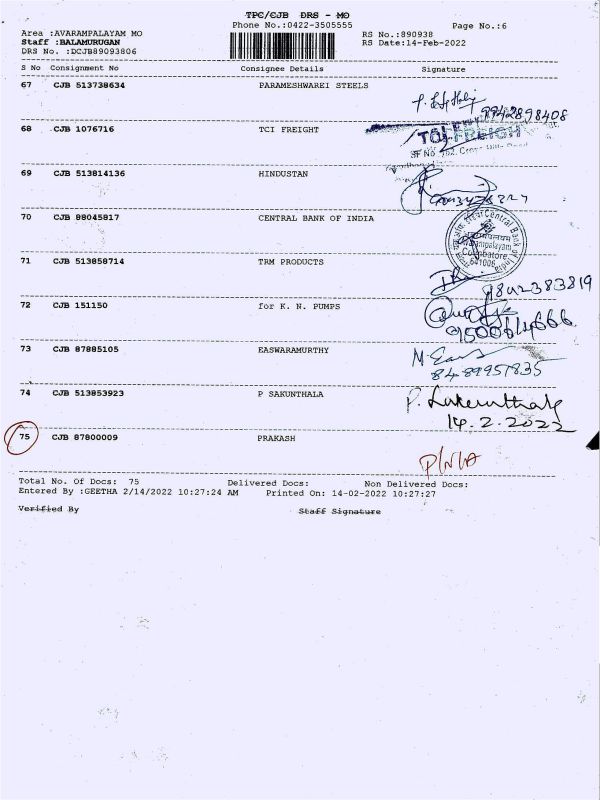 TPC/CJB DRS - MO
Phone No.:0422-3505555 Page No.:6
Area :AVARAMPALAYAM MO RS No.:890938
Staff :BALAMURUGAN RS Date:14-Feb-2022
DRS No. :DCJB89093806
S No Consignment No Consignee Details Signature
67 CJB 513738634 PARAMESHWAREI STEELS
9942898408
68 CJB 1076716 TCI FREIGHT
TCI FREIGH
SF No
69 CJB 513814136 HINDUSTAN
70 CJB 88045817 CENTRAL BANK OF INDIA
Central Bank of India
Coimbatore
641006
71 CJB 513858714 TRM PRODUCTS
9842383819
72 CJB 151150 for K. N. PUMPS
9500614666
73 CJB 87885105 EASWARAMURTHY
8489951835
74 CJB 513853923 P SAKUNTHALA
14.2.2022
75 CJB 87800009 PRAKASH
P/N/A
Total No. Of Docs: 75 Delivered Docs: Non Delivered Docs:
Entered By :GEETHA 2/14/2022 10:27:24 AM Printed On: 14-02-2022 10:27:27
Verified By Staff Signature